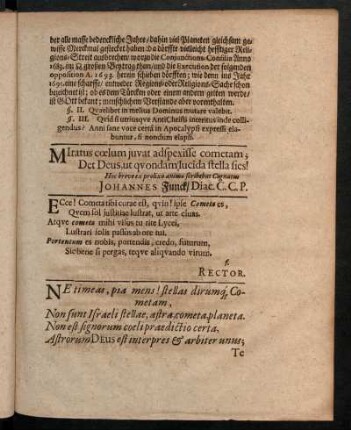 der alle masse bedenckliche Jahre / dahin viel Planeten gleichsam ge-
wisse Merckmal gestecket haben: da dürffte vielleicht hefftiger Reli-
gions-Streit ausbrechen / worzu die Conjunctions-Concilia Anno
1683. in Ω grossen Beytrag thun / und die Execution der folgenden
opposition A. 1693. herein schieben dörfften; wie denn nur Jahr
1691. eine scharffe / entweder Regiens- oder Religions-Sache schon
bezeichnet ist; ob es dem Türcken oder einem andern gelten werde /
ist GOtt bekant; menschlichem Verstande aber vorenthalten.
§. II. Qvaelibet in melius Dominus mutare valebit.
§. III. Qvid si utriusqve AntiChristi interitus inde colli-
gendus? Anni sane voce certâ in Apocalypsi expressi ela-
buntur, si nondum elapsi.
MIratus cœlum juvat adspexisse cometam;
Det Deus, ut qvondam lucida stella sies!
Hoc breve ex prolixo animo scribebat Cygnææ
JOHANNES Funck / Diac. C. C. P.
ECce! Cometa tibi curæ est, qvin! ipse Cometa es,
Qvem sol justitiæ lustrat, ut arte cluas.
Atqve cometa mihi visus tu rite Lycei,
Lustrari solis passus ab ore tui.
Portentum es nobis, portendis, credo, futurum,
Siehene si pergas, teqve aliqvando virum.
RECTOR.
NE timeas, pia mens! stellas dirumq; Co-
metam,
Non sunt Israeli stellæ, astra, cometa, planeta.
Non est signorum coeli praedictio certa.
Astrorum DEUS est interpres & arbiter unus;
Te